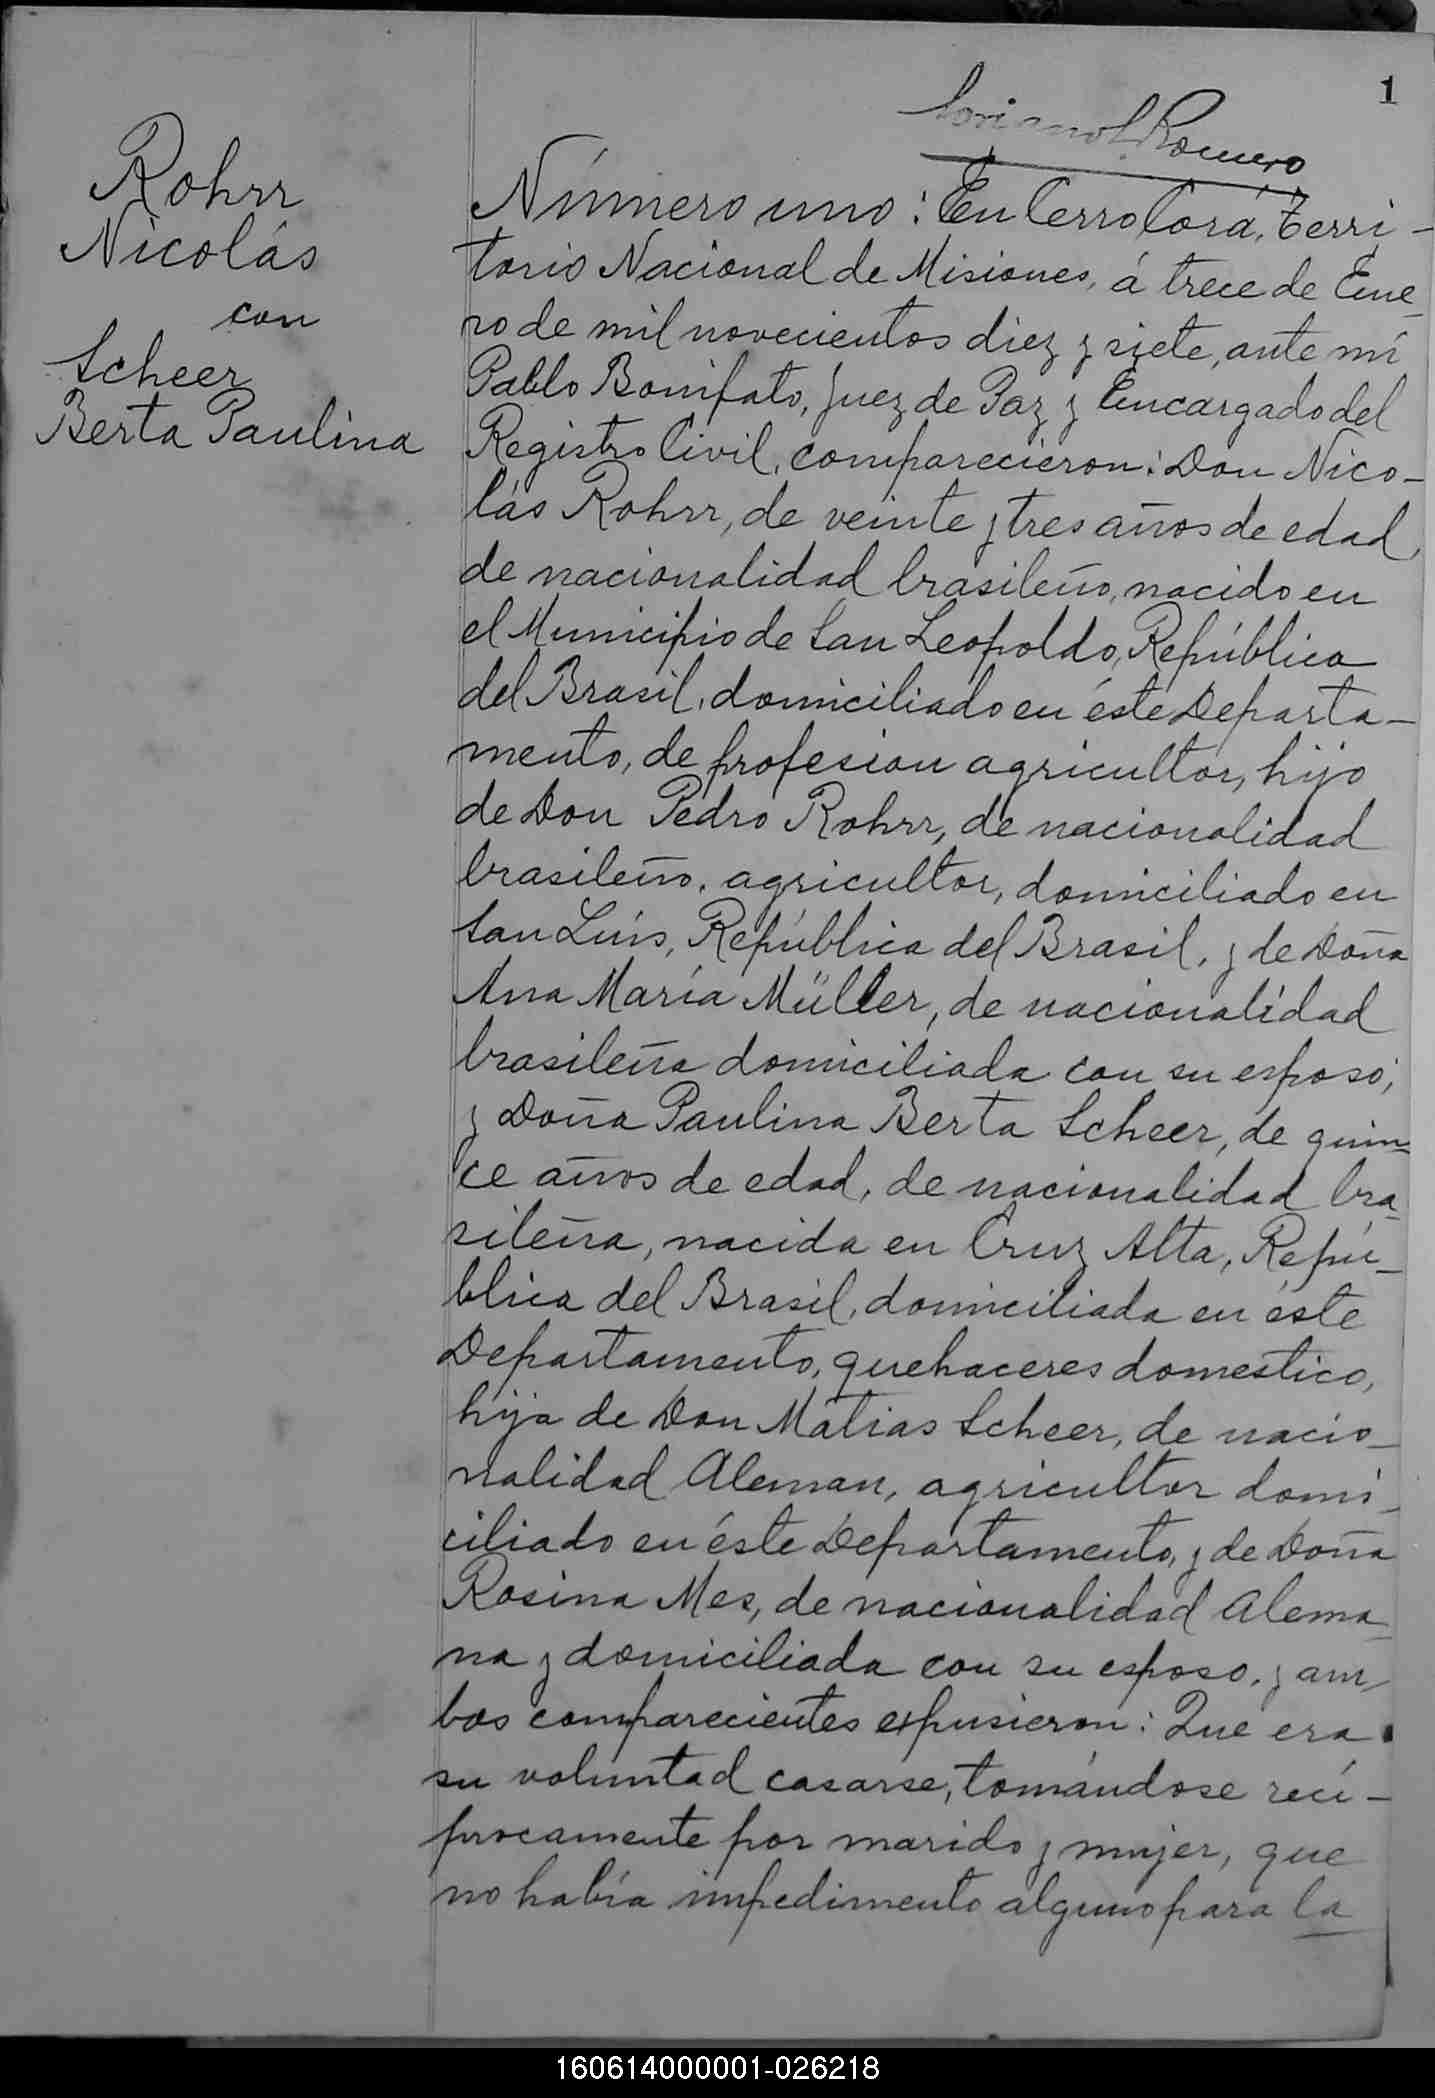 1
Romero
Rohrr
Nicolás
con
Scheer
Berta Paulina
Número uno: En Cerro Corá, Terri-
torio Nacional de Misiones, á trece de Ene-
ro de mil novecientos diez y siete, ante mí
Pablo Bonifato, Juez de Paz y Encargado del
Registro Civil, comparecieron: Don Nico-
lás Rohrr, de veinte y tres años de edad,
de nacionalidad brasileño, nacido en
el Municipio de San Leopoldo, República
del Brasil, domiciliado en éste Departa-
mento, de profesion agricultor, hijo
de Don Pedro Rohrr, de nacionalidad
brasileño, agricultor, domiciliado en
San Luís, República del Brasil, y de Doña
Ana María Müller, de nacionalidad
brasileña domiciliada con su esposo;
y Doña Paulina Berta Scheer, de quin-
ce años de edad, de nacionalidad bra-
sileña, nacida en Cruz Alta, Repú-
blica del Brasil, domiciliada en éste
Departamento, quehaceres domestico,
hija de Don Matias Scheer, de nacio-
nalidad Aleman, agricultor domi-
ciliado en éste Departamento, y de Doña
Rosina Mes, de nacionalidad Alema-
na y domiciliada con su esposo, y am-
bos comparecientes expusieron: Que era
su voluntad casarse, tomándose recí-
procamente por marido y mujer, que
no había impedimento alguno para la
160614000001-026218